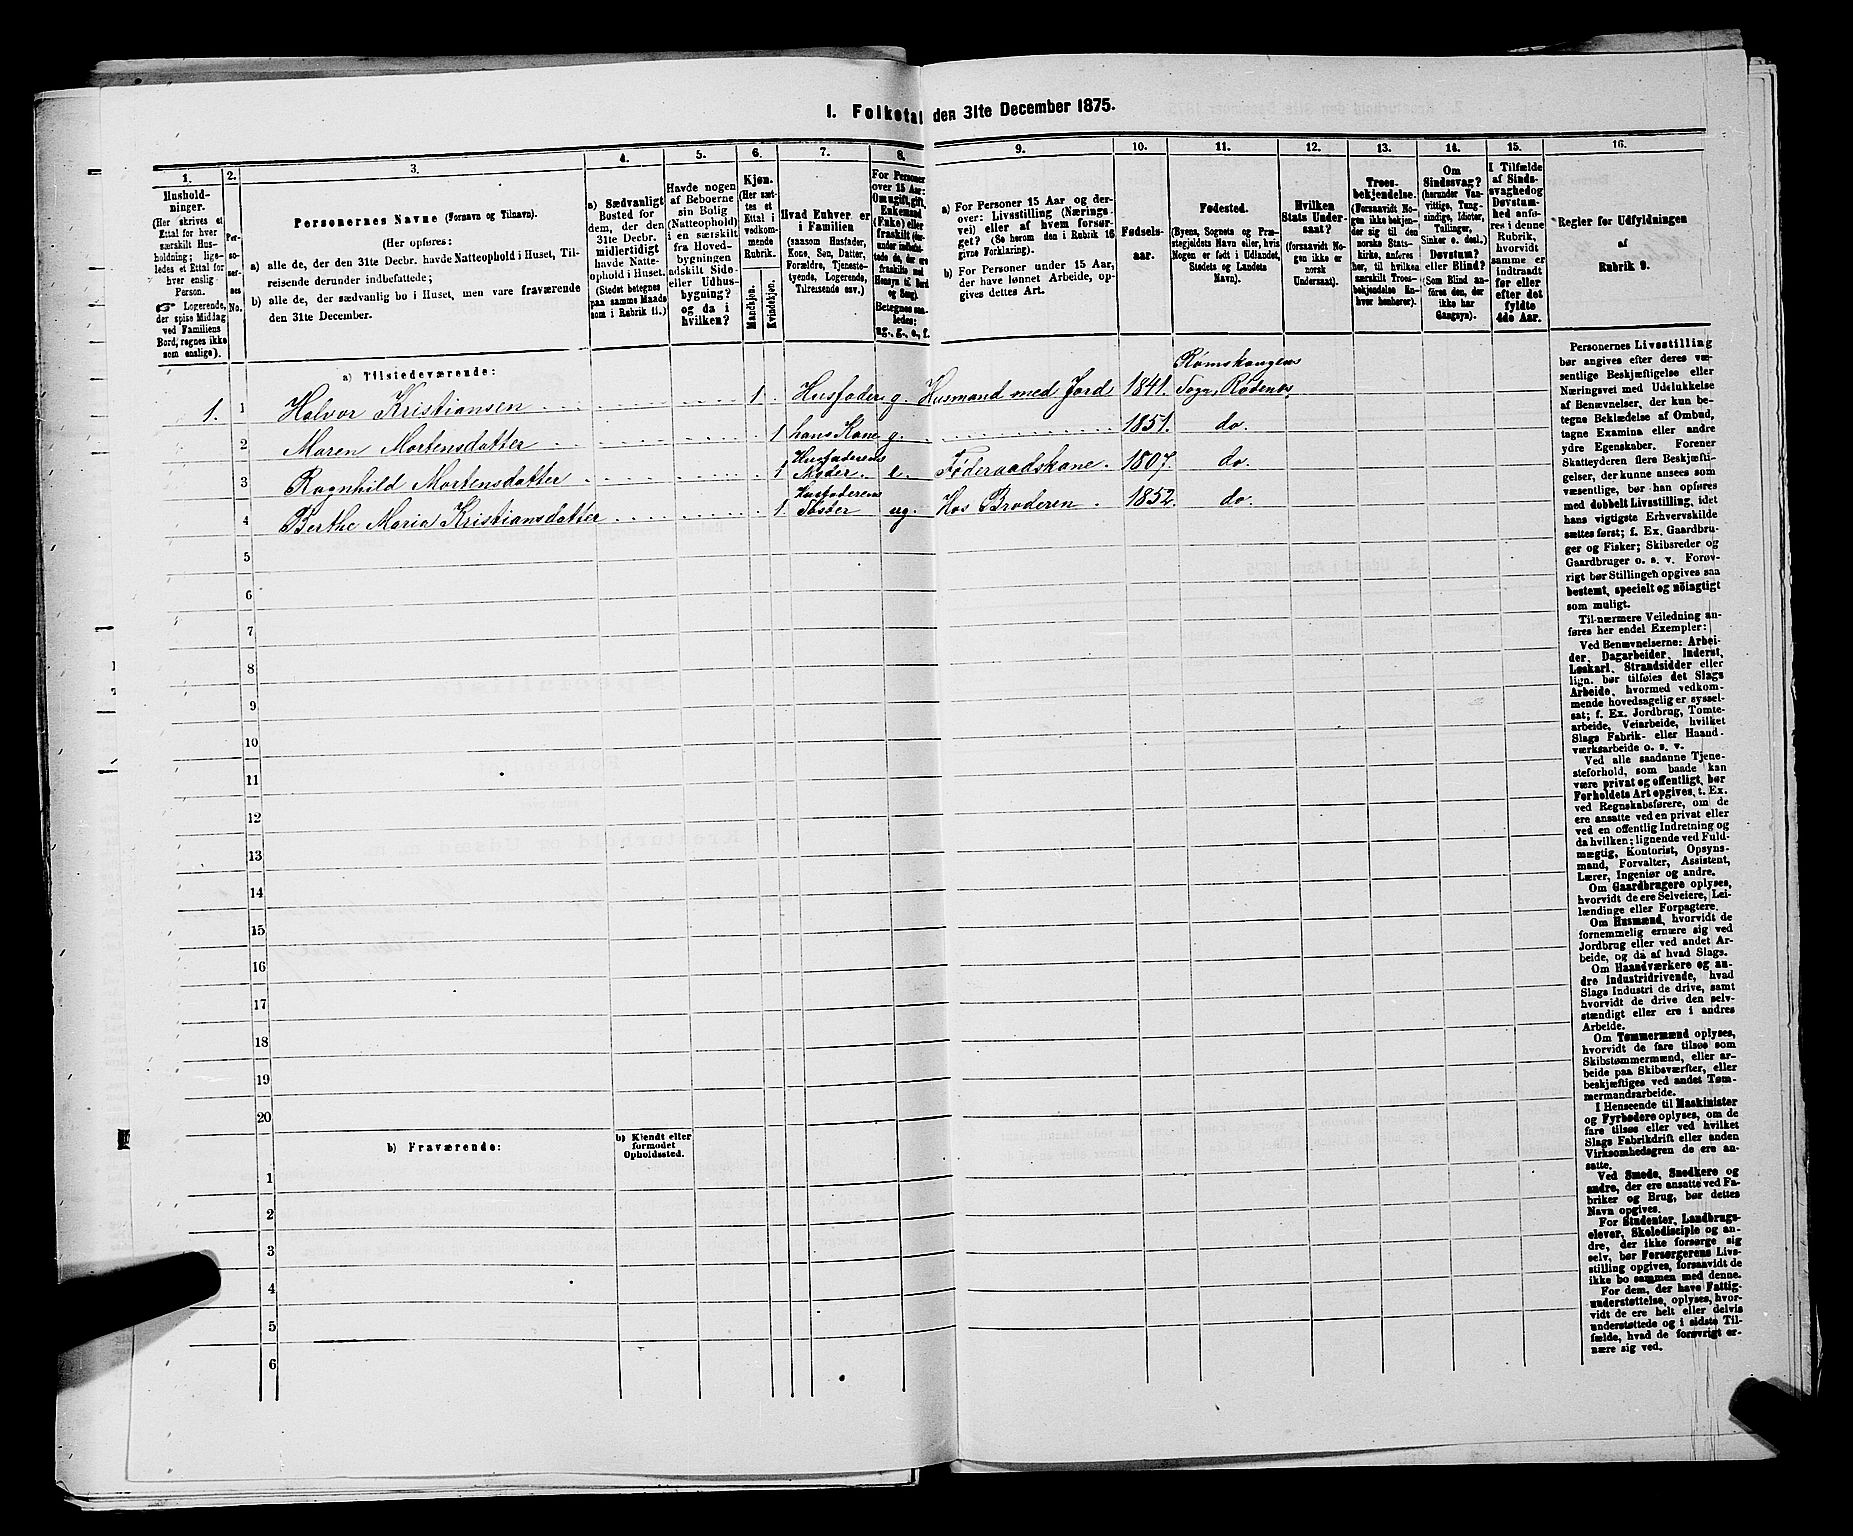 I. Folketal den 31te December 1875.
1.
Husholdninger.
(Her skrives et Ettal for hver særskilt Husholdning; ligeledes et Ettal for hver enslig Person.
Logerende, der spise Middag ved Familiens Bord, regnes ikke som enslige).
2.
Personernes No.
3.
Personernes Navne (Fornavn og Tilnavn).
(Her opføres:
a) alle de, der den 31te Decbr. havde Natteophold i Huset, Tilreisende derunder indbefattede;
b) alle de, der sædvanlig bo i Huset, men vare fraværende den 31te December.
4.
a) Sædvanligt Bosted for dem, der den 31te Decbr. midlertidigt havde Natteophold i Huset.
(Stedet betegnes paa samme Maade som i Rubrik 11.)
5.
Havde nogen af Beboerne sin Bolig (Natteophold) i en særskilt fra Hovedbygningen adskilt Side- eller Udhusbygning? og da i hvilken?
6.
Kjøn.
(Her sættes et Ettal i vedkommende Rubrik.
Mandkjøn.
Kvindekjøn.
7.
Hvad Enhver er i Familien
(saasom Husfader, Kone, Søn, Datter, Forældre, Tjenestetyende, Logerende, Tilreisende osv.)
8.
For Personer over 15 Aar:
Betegnes saaledes:
ug., g., e., f.
9.
a) For Personer 15 Aar og derover: Livsstilling (Næringsvei) eller af hvem forsørget? (Se herom den i Rubrik 16 givne Forklaring).
b) For Personer under 15 Aar, der have lønnet Arbeide, opgives dettes Art.
10.
Fødselsaar.
11.
Fødested.
(Byens, Sognets og Præstegjeldets Navn eller, hvis Nogen er født i Udlandet, Stedets og Landets Navn).
12.
Hvilken Stats Undersaat?
(forsaavidt Nogen ikke er norsk Undersaat).
13.
Troesbekjendelse.
(Forsaavidt Nogen ikke bekjender sig til den norske Statskirke, anføres her, til hvilken særskilt Troesbekjendelse Enhver henhører).
14.
Om Sindssvag?
(herunder Vanvittige, Tungsindige, Idioter, Tullinger, Sinker o. desl.)
Døvstum?
eller Blind?
(Som Blind anføres den, der ikke har Gangsyn).
15.
I Tilfælde af Sindssvaghed og Døvstumhed anføres i denne Rubrik, hvorvidt samme er indtraadt før eller efter det fyldte 4de Aar.
16.
Regler for Udfyldningen
af
Rubrik 9.
a) Tilstedeværende:
1. 1 Halvor Kristiansen 1 Husfader g. Husmand med Jord 1841. Rømskougens Sogn, Rødenes
2 Maren Mortensdatter 1 hans Kone g. 1851. do.
3 Ragnhild Mortensdatter 1 Husfaderens Moder. e. Føderaadskone. 1807. do.
4 Berthe Maria Kristiansdatter 1 Husfaderens Søster ug. Hos Broderen. 1852. do.
5
6
7
8
9
10
11
12
13
14
15
16
17
18
19
20
b) Fraværende:
b) Kjendt eller formodet Opholdssted.
1
2
3
4
5
6
Personernes Livsstilling
bør angives efter deres væ-
sentlige Beskjæftigelse eller
Næringsvei med Udslukkelse
af Benævnelser, der kun be-
tegne Beklædelse af Ombud,
tagne Examina eller andre
ydre Egenskaber. Forener
Skatteyderen flere Beskjæfti-
gelser, der kunne ansees som
væsentlige, bør han opføres
med dobbelt Livsstilling, idet
hans vigtigste Erhvervskilde
sættes først; f. Ex. Gaardbru-
ger og Fisker; Skibsreder og
Gaardbruger o. s. v. Forøv-
rigt bør Stillingen opgives saa
bestemt, specielt og nöiagtigt
som muligt.
Til nærmere Veiledning an-
føres her endel Exempler:
Ved Benævnelserne: Arbei-
der, Dagarbeider, Inderst,
Løskarl, Strandsidder eller
lign. bør tilføies det Slags
Arbeide, hvormed vedkom-
mende hovedsagelig er syssel-
sat; f. Ex. Jordbrug, Tomte-
arbeide, Veiarbeide, hvilket
Slags Fabrik- eller Haand-
værksarbeide o. s. v.
Ved alle saadanne Tjene-
steforhold, som baade kan
være privat og offentligt, bør
Forholdets Art opgives, f. Ex.
ved Regnskabsførere, om de
ere ansatte ved en privat eller
ved en offentlig Indretning og
da hvilken; lignende ved Fuld-
mægtig, Kontorist, Opsyns-
mand, Forvalter, Assistent,
Lærer, Ingeniør og andre.
Om Gaardbrugere oplyses,
hvorvidt de ere Selveiere, Lei-
lændinge eller Forpagtere.
Om Husmænd, hvorvidt de
fornemmelig ernære sig ved
Jordbrug eller ved andet Ar-
beide, og da af hvad Slags.
Om Haandværkere og an-
dre Industridrivende, hvad
Slags Industri de drive, samt
hvorvidt de drive den selv-
stændigt eller ere i andres
Arbeide.
Om Tømmermænd oplyses,
hvorvidt de fare tilsøs som
Skibstømmermænd, eller ar-
beide paa Skibsværfter, eller
beskjæftiges ved andet Tøm-
mermandsarbeide.
I Henseende til Maskinister
og Fyrbødere oplyses, om de
fare tilsøs eller ved hvilket
Slags Fabrikdrift eller anden
Virksomhedsgren de ere an-
satte.
Ved Smede, Snedkere og
andre, der ere ansatte ved Fa-
briker og Brug, bør dettes
Navn opgives.
For Studenter, Landbrugs-
elever, Skoledisciple og an-
dre, der ikke forsørge sig
selv, bør Forsørgerens Livs-
stilling opgives, forsaavidt de
ikke bo sammen med denne.
For dem, der have Fattig-
understøttelse, oplyses, hvor-
vidt de ere helt eller delvis
understøttede og i sidste Til-
fælde, hvad de forøvrigt er-
nære sig ved.